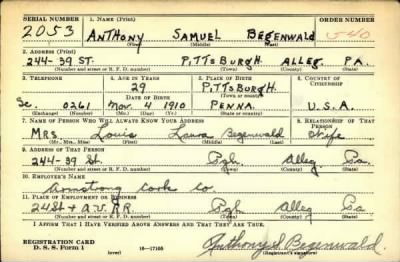 SERIAL NUMBER 1. NAME (Print) ORDER NUMBER
2053 ANTHONY SAMUEL BEGENWALD 540
(First) (Middle) (Last)
2. ADDRESS (Print)
244-39 ST. PITTSBURGH ALLEG. PA.
(Number and street or R. F. D. number) (Town) (County) (State)
3. TELEPHONE 4. AGE IN YEARS 5. PLACE OF BIRTH 6. COUNTRY OF CITIZENSHIP
29 PITTSBURGH.
DATE OF BIRTH (Town or county)
Sc. 0261 Nov. 4 1910 PENNA. U.S.A.
(Exchange) (Number) (Mo.) (Day) (Yr.) (State or country)
7. NAME OF PERSON WHO WILL ALWAYS KNOW YOUR ADDRESS 8. RELATIONSHIP OF THAT PERSON
Mrs. Louis Laura Begenwald Wife
(Mr., Mrs., Miss) (First) (Middle) (Last)
9. ADDRESS OF THAT PERSON
244-39 St. Pgh. Alleg. Pa
(Number and street or R. F. D. number) (Town) (County) (State)
10. EMPLOYER'S NAME
Armstrong Cork Co.
11. PLACE OF EMPLOYMENT OR BUSINESS
24 St & A.V.RR. Pgh Alleg Pa
(Number and street or R. F. D. number) (Town) (County) (State)
I AFFIRM THAT I HAVE VERIFIED ABOVE ANSWERS AND THAT THEY ARE TRUE.
REGISTRATION CARD
D. S. S. Form 1 (over) 16—17105 Anthony S. Begenwald.
(Registrant's signature)